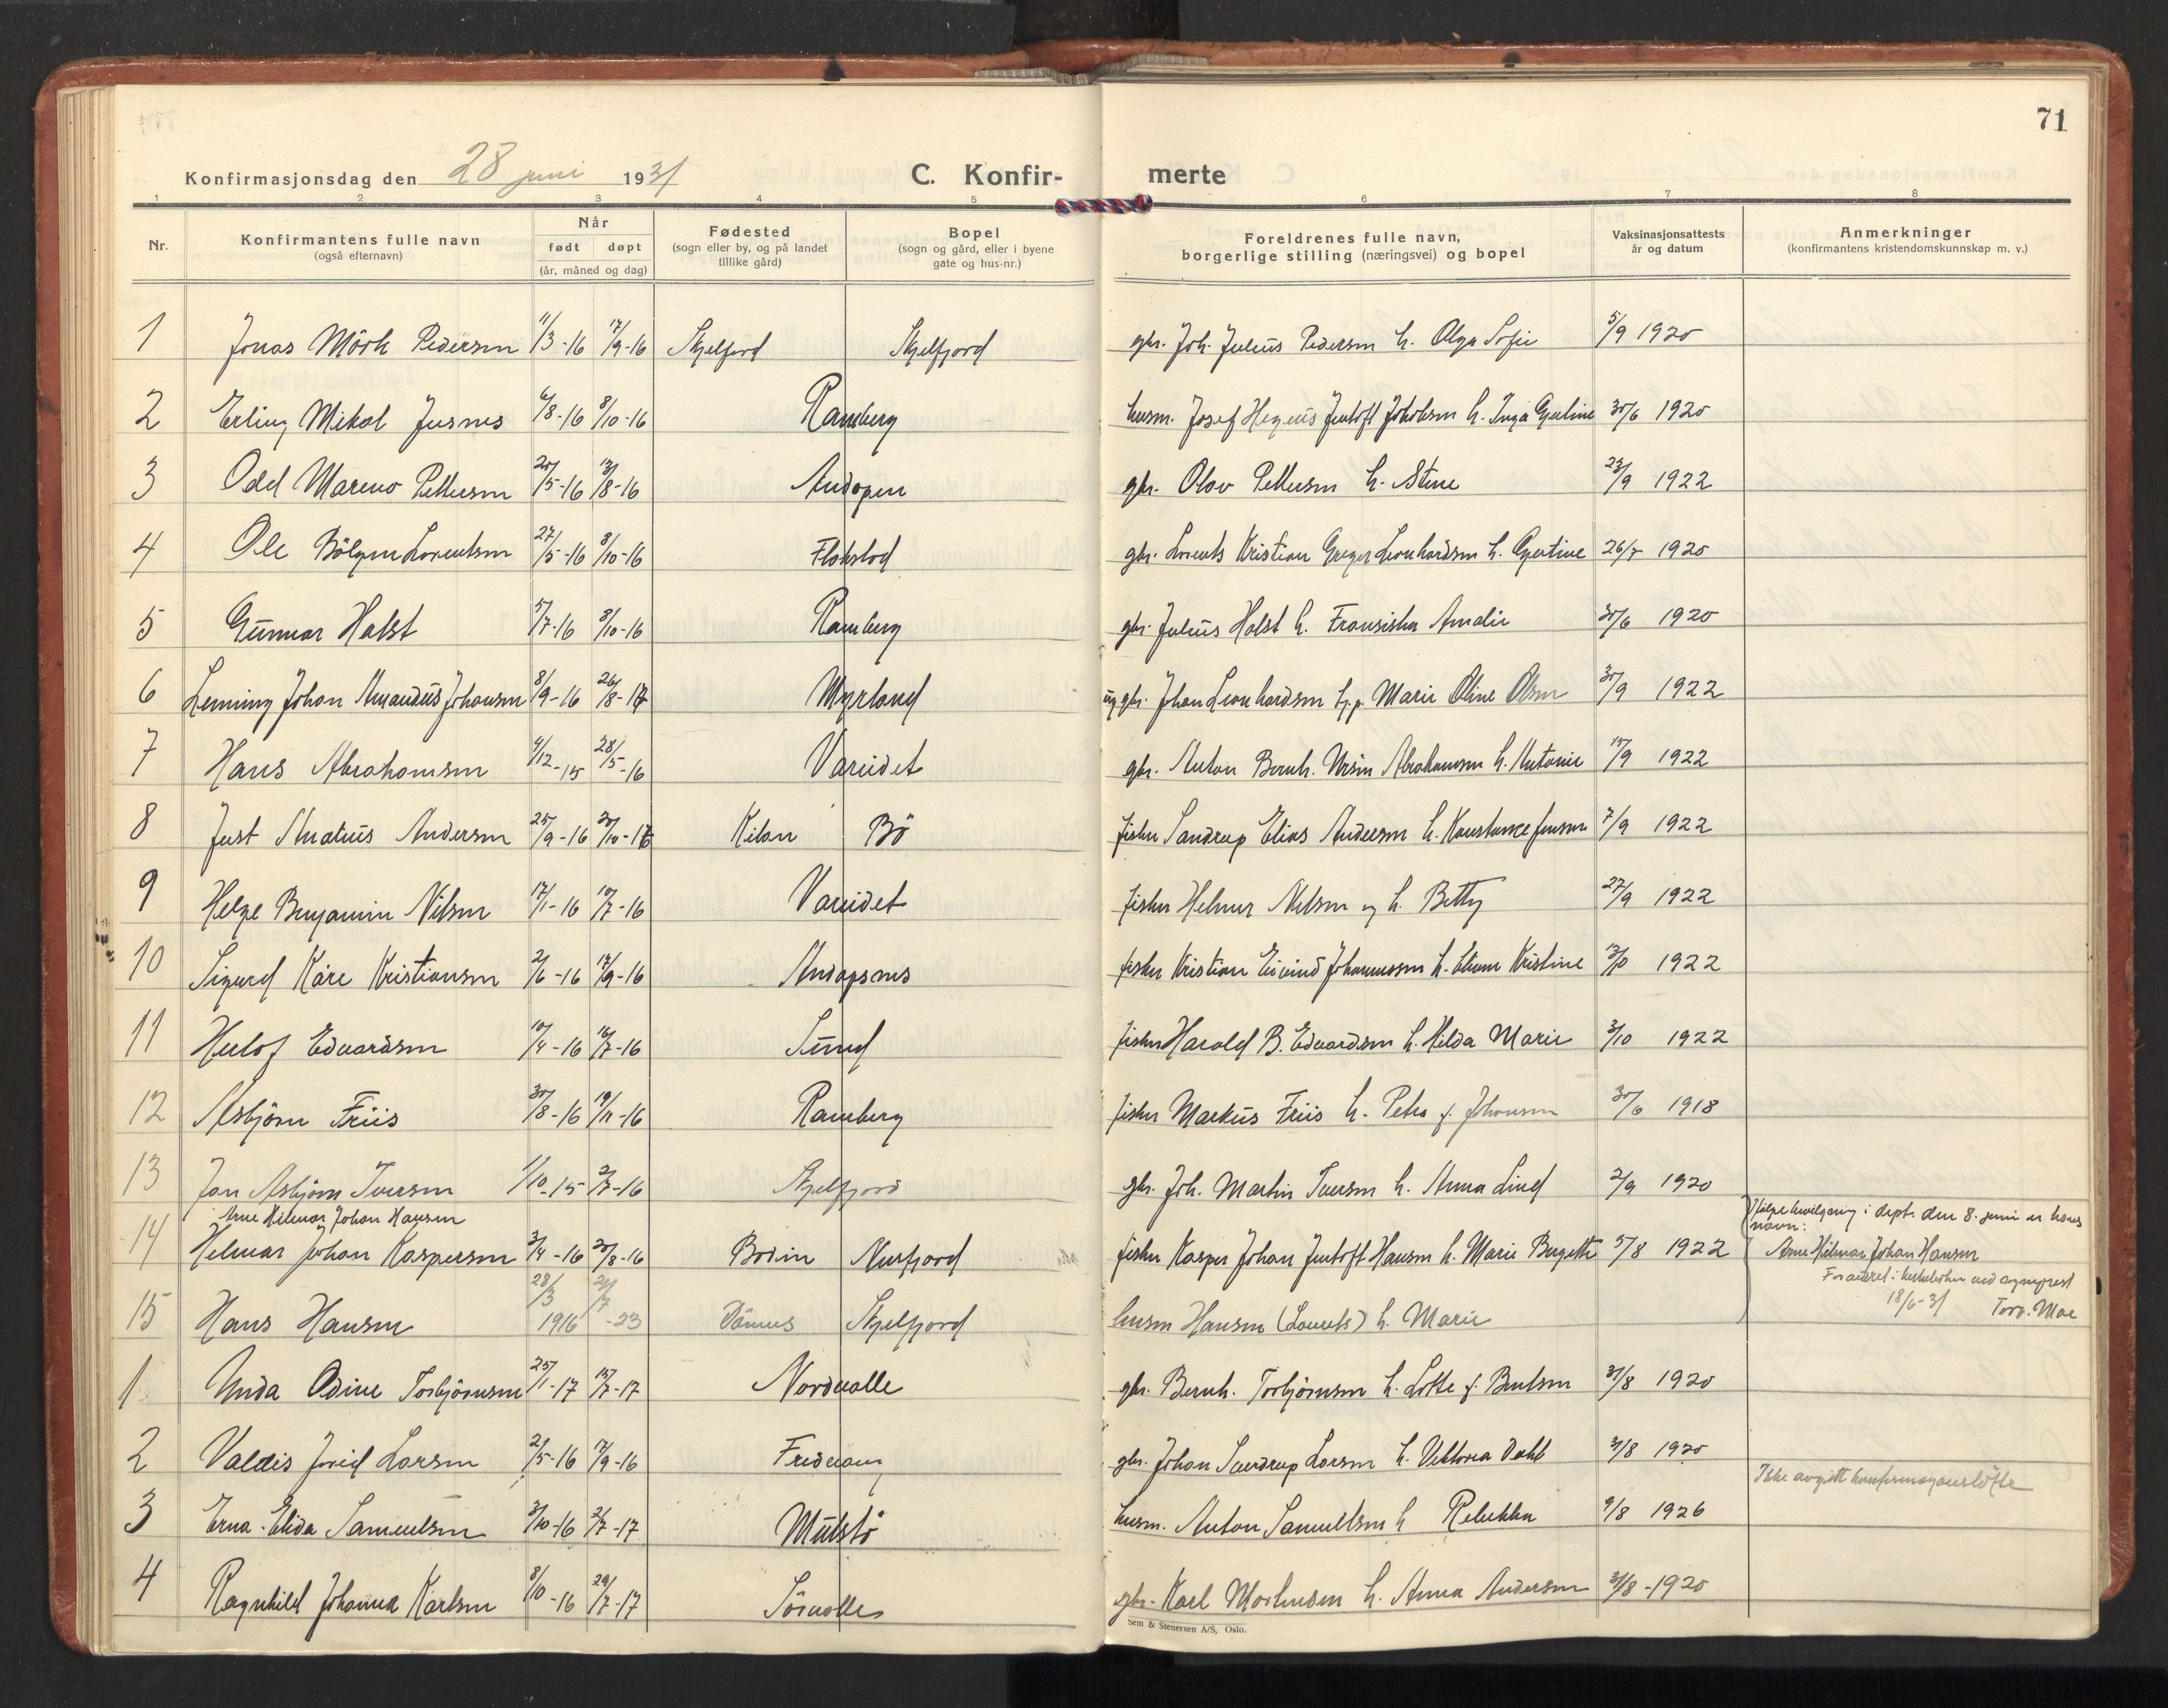 71
Konfirmasjonsdag den 28 juni 1931
C. Konfir- merte
1 2 3 4 5 6 7 8
Nr. Konfirmantens fulle navn (også efternavn) Når født døpt (år, måned og dag) Fødested (sogn eller by, og på landet tillike gård) Bopel (sogn og gård, eller i byene gate og hus-nr.) Foreldrenes fulle navn, borgerlige stilling (næringsvei) og bopel Vaksinasjonsattests år og datum Anmerkninger (konfirmantens kristendomskunnskap m. v.)
1 Jonas Mörk Pedersen 11/3-16 17/9-16 Skjelfjord Skjelfjord gbr. Joh. Julius Pedersen h. Olga Sofie 5/9 1920
2 Erling Mikal Jusnes 6/8-16 8/10-16 Ramberg husm. Josef Jentoft Jakobsen h. Inga 30/6 1920
3 Odd Mareno Pettersen 20/5-16 13/8-16 Andopen gbr. Olav Pettersen h. Stine 23/9 1922
4 Ole Lorentsen 27/5-16 8/10-16 Flakstad gbr. Lorents Kristian Greger Leonhardsen h. Gjertine 26/7 1920
5 Gunnar Holst 5/7-16 8/10-16 Ramberg gbr. Julius Holst h. Fransiska Amalie 30/6 1920
6 Lenning Johan Amandus Johansen 8/9-16 26/8-17 Myrland ug gbr. Johan Leonhardsen h.p. Marie Oline Olsen 30/9 1922
7 Hans Abrahamsen 4/12-15 28/5-16 Vareidet gbr. Anton Bernh. Ursin Abrahamsen h. Antonie 15/9 1922
8 Just Amatius Andersen 25/9-16 Kilan Bö fisker Sandrup Elias Andersen h. Konstanse Jensen 7/9 1922
9 Helge Benjamin Nilsen 17/1-16 10/7-16 Vareidet fisker Helmer Nilsen og h. Betty 27/9 1922
10 Sigurd Kåre Kristiansen 2/6-16 17/9-16 Andopsnes fisker Kristian Eivind Johannessen h. Kristine 1922
11 Herlof Edvardsen 10/4-16 16/7-16 Sund fisker Harald B. Edvardsen h. Hilda Marie 3/10 1922
12 Asbjörn Friis 30/8-16 19/11-16 Ramberg fisker Markus Friis h. Petra f. Johansen 30/6 1918
13 Jan Asbjörn Iversen 1/10-15 2/7-16 Skjelfjord gbr. Joh. Martin Iversen h. Anna Lind 2/9 1920
Arne Hilmar Johan Hansen
14 Helmar Johan Kaspersen 3/4-16 20/8-16 Bodin Nusfjord fisker Kasper Johan Jentoft Hansen h. Marie Bergitte 5/8 1922
Ifölge bevilgning i dept. den 8. juni er hans
navn:
Arne Hilmar Johan Hansen
Forandret i kirkeboken ved sogneprest
18/6-31 Torv. Moe
15 Hans Hansen 28/3 1916 21/7-23 Skjelfjord husm Hansen (Lorents) h. Marie
1 Unda Odine Torbjörnsen 25/1-17 15/7-17 Nordvalle gbr. Bernh. Torbjörnsen h. Lotte f. Berntsen 31/8 1920
2 Valdis Jorid Larsen 21/5-16 17/9-16 Fredvang gbr. Johan Sverdrup Larsen h. Viktoria Dahl 31/8 1920
Ikke avgitt konfirmasjonslöfte
3 Erna Elida Samuelsen 3/10-16 2/7-17 Mulstö husm. Anton Samuelsen h Rebekka 9/8 1926
4 Ragnhild Johanna Karlsen 8/10-16 29/7-17 Sörvalle gbr. Karl Mortensen h. Anna Andersen 31/8-1920
Sem & Stenersen A/S, Oslo.